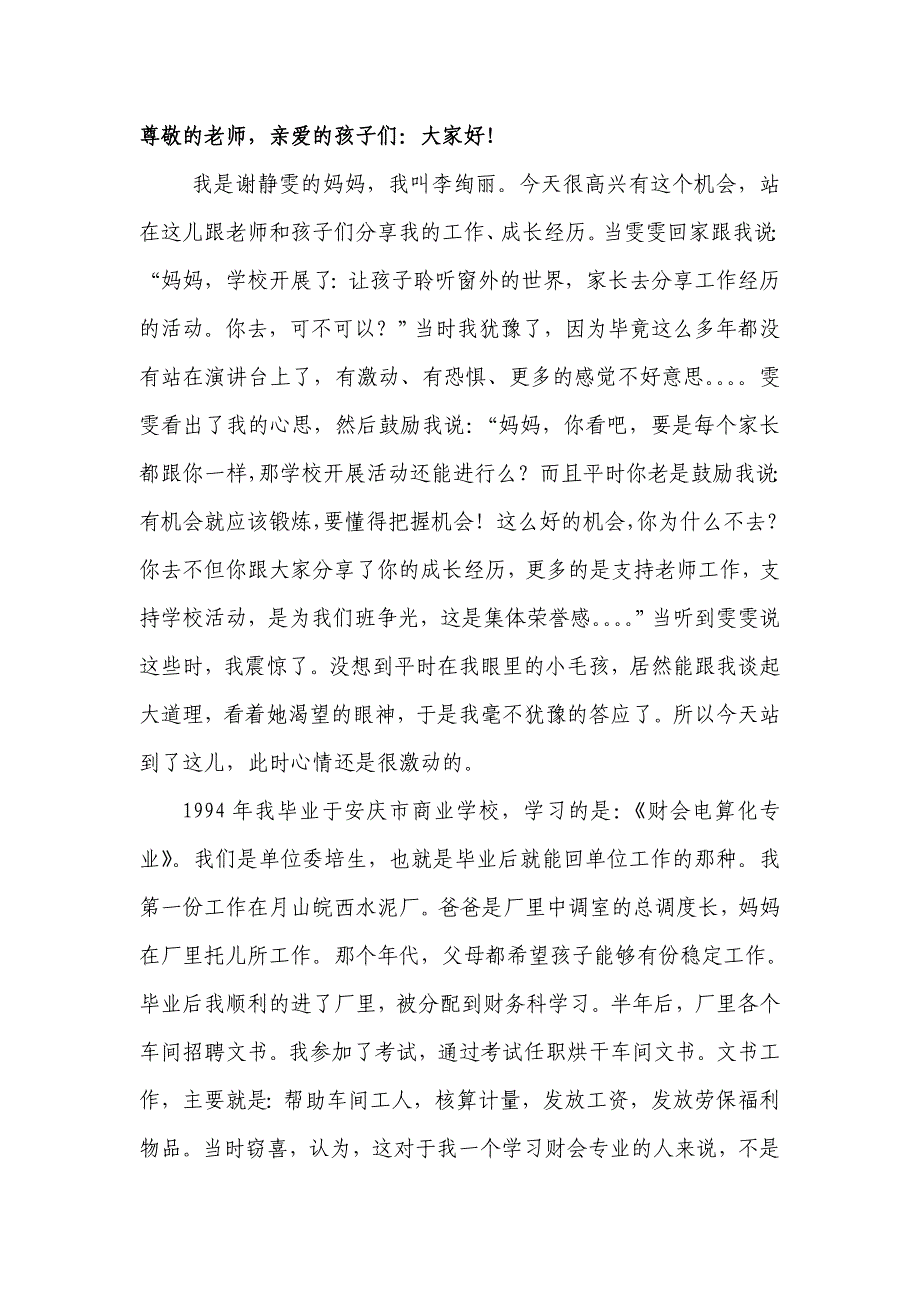 尊敬的老师，亲爱的孩子们：大家好！
我是谢静雯的妈妈，我叫李绚丽。今天很高兴有这个机会，站
在这儿跟老师和孩子们分享我的工作、成长经历。当雯雯回家跟我说：
“妈妈，学校开展了：让孩子聆听窗外的世界，家长去分享工作经历
的活动。你去，可不可以？”当时我犹豫了，因为毕竟这么多年都没
有站在演讲台上了，有激动、有恐惧、更多的感觉不好意思。。。。雯
雯看出了我的心思，然后鼓励我说：“妈妈，你看吧，要是每个家长
都跟你一样，那学校开展活动还能进行么？而且平时你老是鼓励我说：
有机会就应该锻炼，要懂得把握机会！这么好的机会，你为什么不去？
你去不但你跟大家分享了你的成长经历，更多的是支持老师工作，支
持学校活动，是为我们班争光，这是集体荣誉感。。。。”当听到雯雯说
这些时，我震惊了。没想到平时在我眼里的小毛孩，居然能跟我谈起
大道理，看着她渴望的眼神，于是我毫不犹豫的答应了。所以今天站
到了这儿，此时心情还是很激动的。
1994 年我毕业于安庆市商业学校，学习的是：《财会电算化专
业》。我们是单位委培生，也就是毕业后就能回单位工作的那种。我
第一份工作在月山皖西水泥厂。爸爸是厂里中调室的总调度长，妈妈
在厂里托儿所工作。那个年代，父母都希望孩子能够有份稳定工作。
毕业后我顺利的进了厂里，被分配到财务科学习。半年后，厂里各个
车间招聘文书。我参加了考试，通过考试任职烘干车间文书。文书工
作，主要就是：帮助车间工人，核算计量，发放工资，发放劳保福利
物品。当时窃喜，认为，这对于我一个学习财会专业的人来说，不是